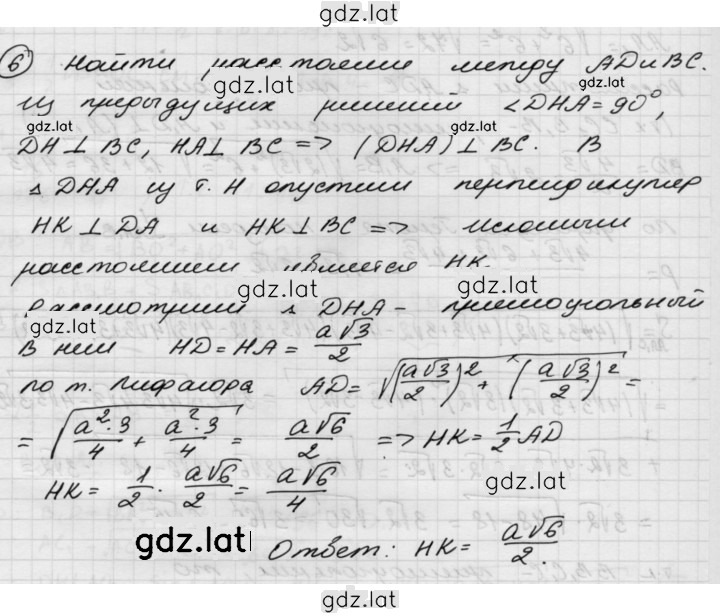 gdz.lat
6) Найти расстояние между AD и BC.
gdz.lat
Из предыдущих решений ∠DHA = 90°,
gdz.lat gdz.lat
DH ⊥ BC, HA ⊥ BC => (DHA) ⊥ BC. В
△ DHA из т. H опустим перпендикуляр
HK ⊥ DA и HK ⊥ BC => искомым
расстоянием является HK.
gdz.lat gdz.lat
Рассмотрим △ DHA - прямоугольный
gdz.lat
В нем HD = HA = a√3/2
по т. Пифагора AD = √((a√3/2)² + (a√3/2)²) =
= √(a²·3/4 + a²·3/4) = a√6/2 => HK = 1/2 AD
HK = 1/2 · a√6/2 = a√6/4
gdz.lat
gdz.lat
Ответ: HK = a√6/2.
gdz.lat